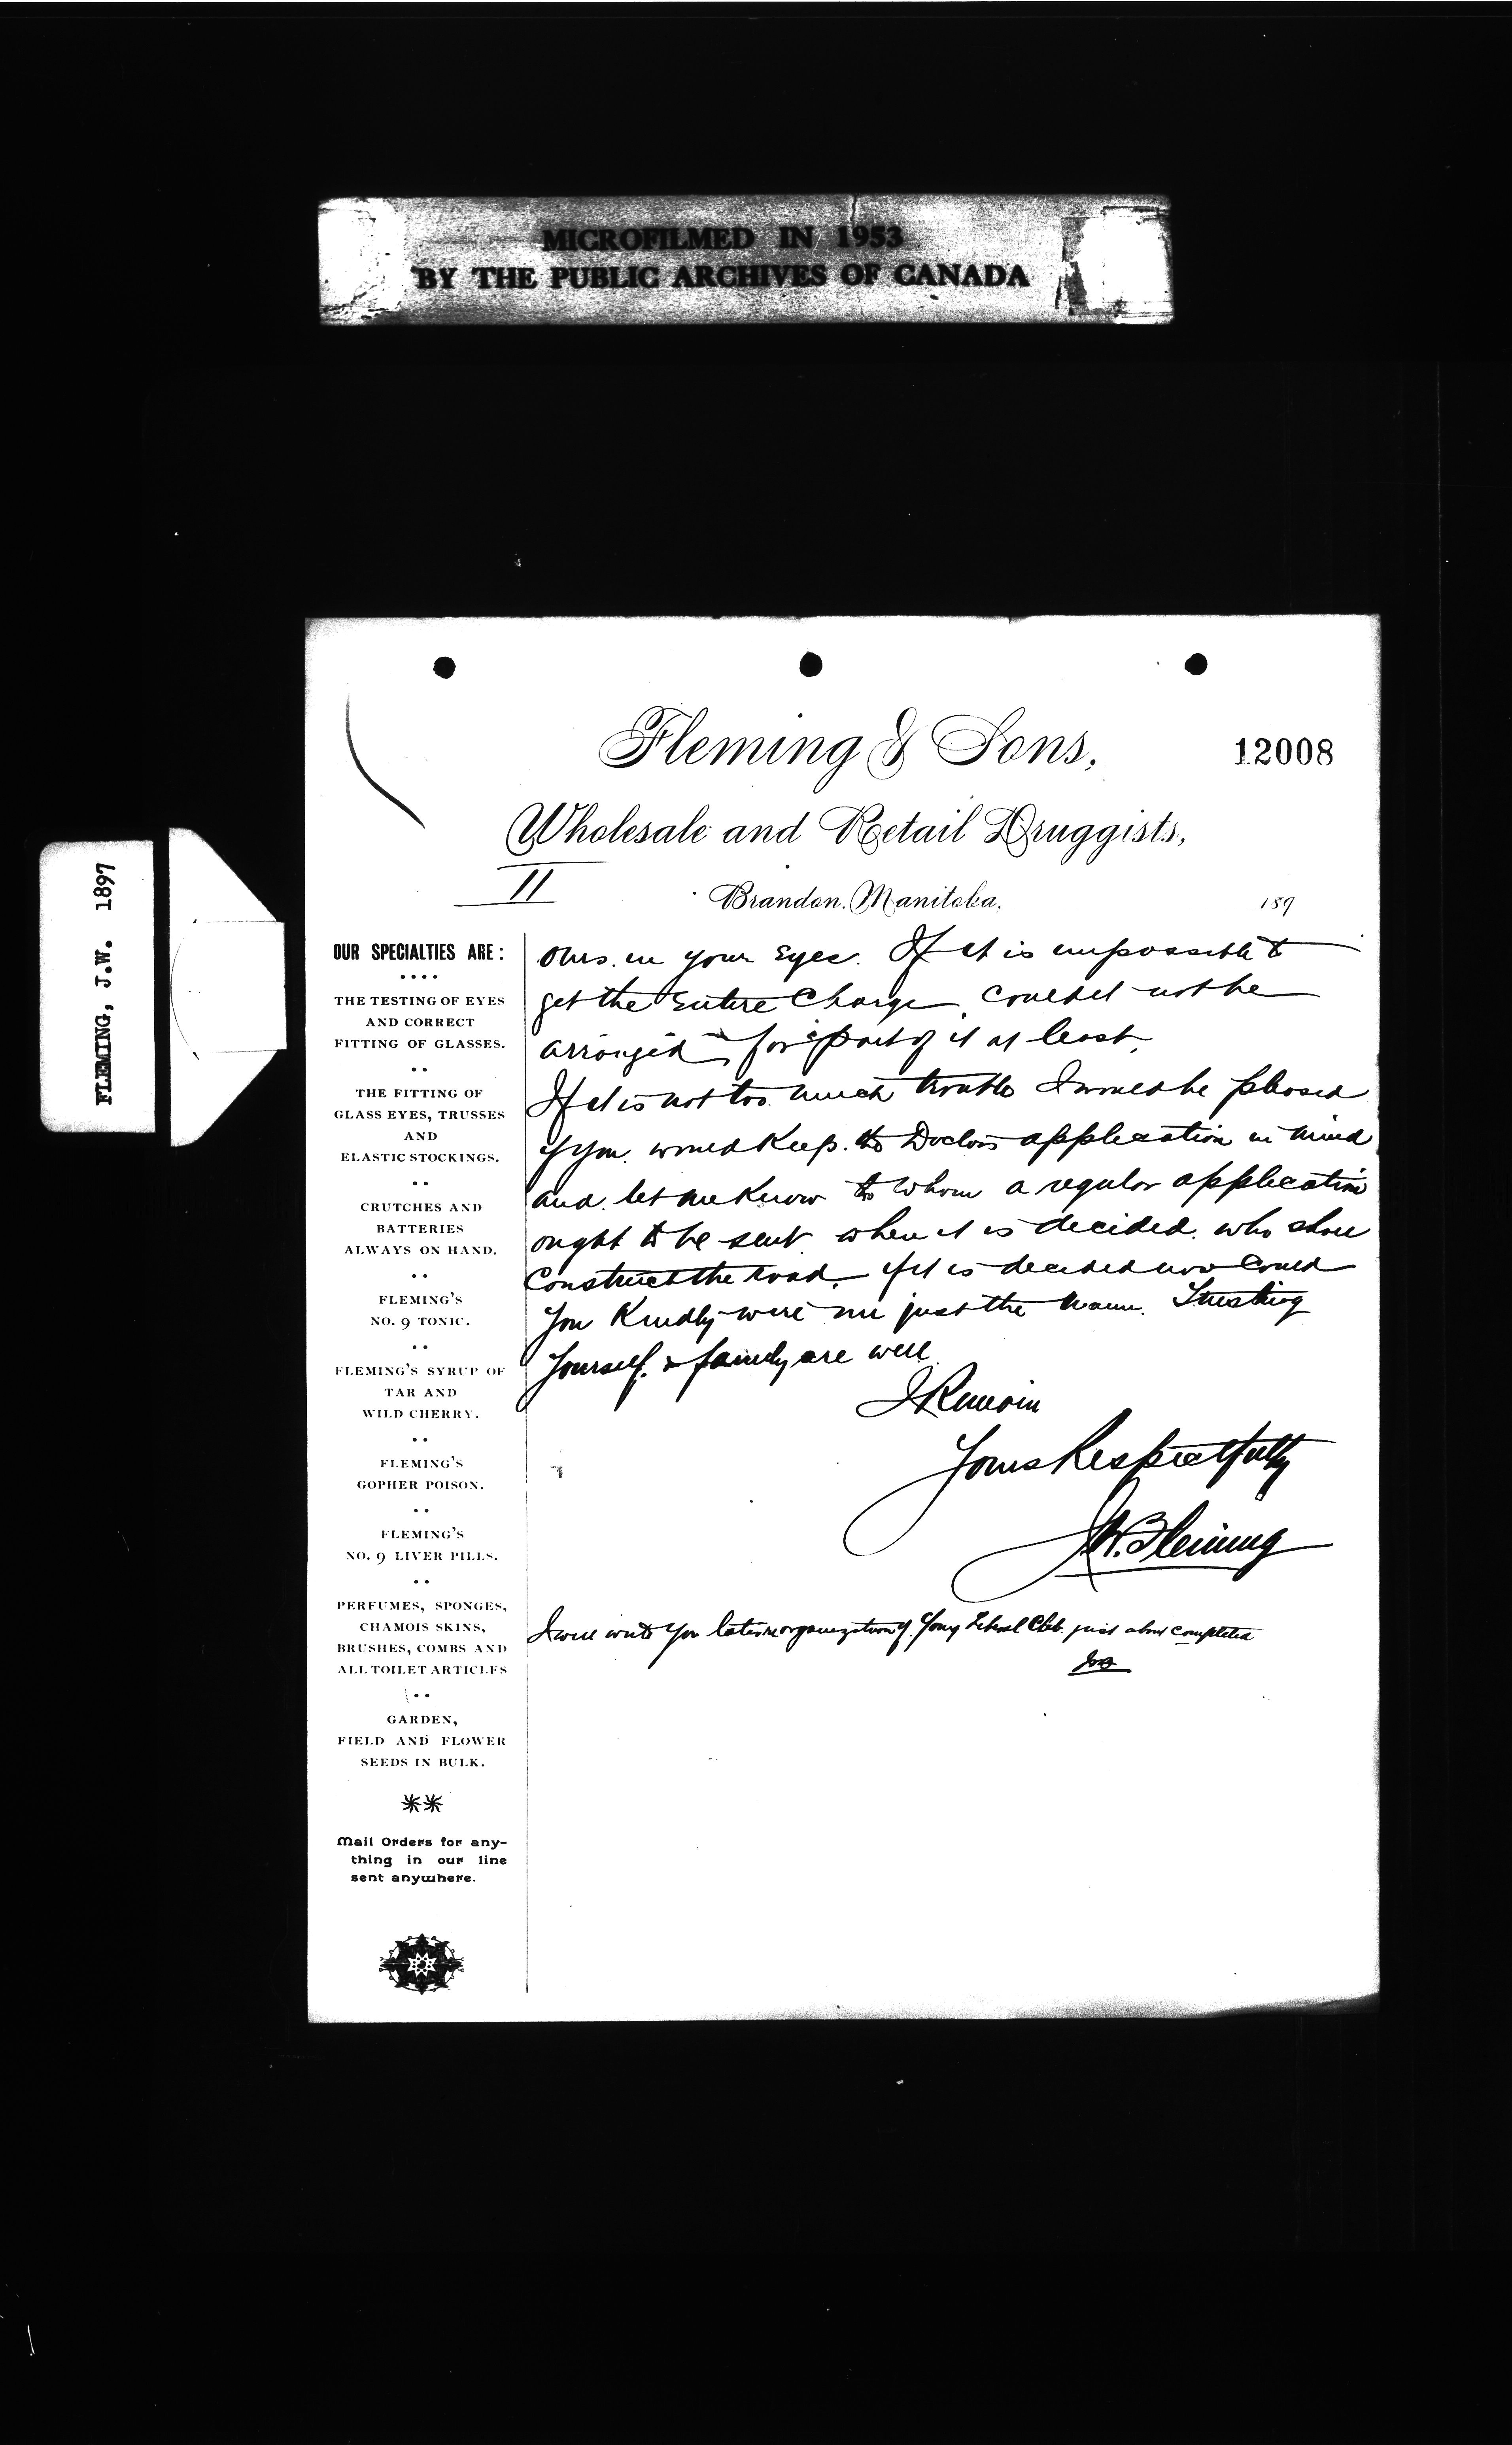 MICROFILMED IN 1953
BY THE PUBLIC ARCHIVES OF CANADA
FLEMING, J.W. 1897
Fleming & Sons,
12008
Wholesale and Retail Druggists,
II
Brandon, Manitoba. 189
OUR SPECIALTIES ARE:
THE TESTING OF EYES
AND CORRECT
FITTING OF GLASSES.
THE FITTING OF
GLASS EYES, TRUSSES
AND
ELASTIC STOCKINGS.
CRUTCHES AND
BATTERIES
ALWAYS ON HAND.
FLEMING'S
NO. 9 TONIC.
FLEMING'S SYRUP OF
TAR AND
WILD CHERRY.
FLEMING'S
GOPHER POISON.
FLEMING'S
NO. 9 LIVER PILLS.
PERFUMES, SPONGES,
CHAMOIS SKINS,
BRUSHES, COMBS AND
ALL TOILET ARTICLES
GARDEN,
FIELD AND FLOWER
SEEDS IN BULK.
Mail Orders for any-
thing in our line
sent anywhere.
ours in your Eyes. If it is impossible to
get the Entire Charge, could it not be
arranged for part of it at least.
If it is not too much trouble I would be pleased
if you would Keep the Doctors application in mind
and let me Know to whom a regular application
ought to be sent when it is decided who shall
Construct the road. If it is decided now Could
you Kindly wire me just the name. Trusting
yourself & family are well
I Remain
Yours Respectfully
J.W. Fleming
I will write you later re organization of Young Liberal Club. just about completed